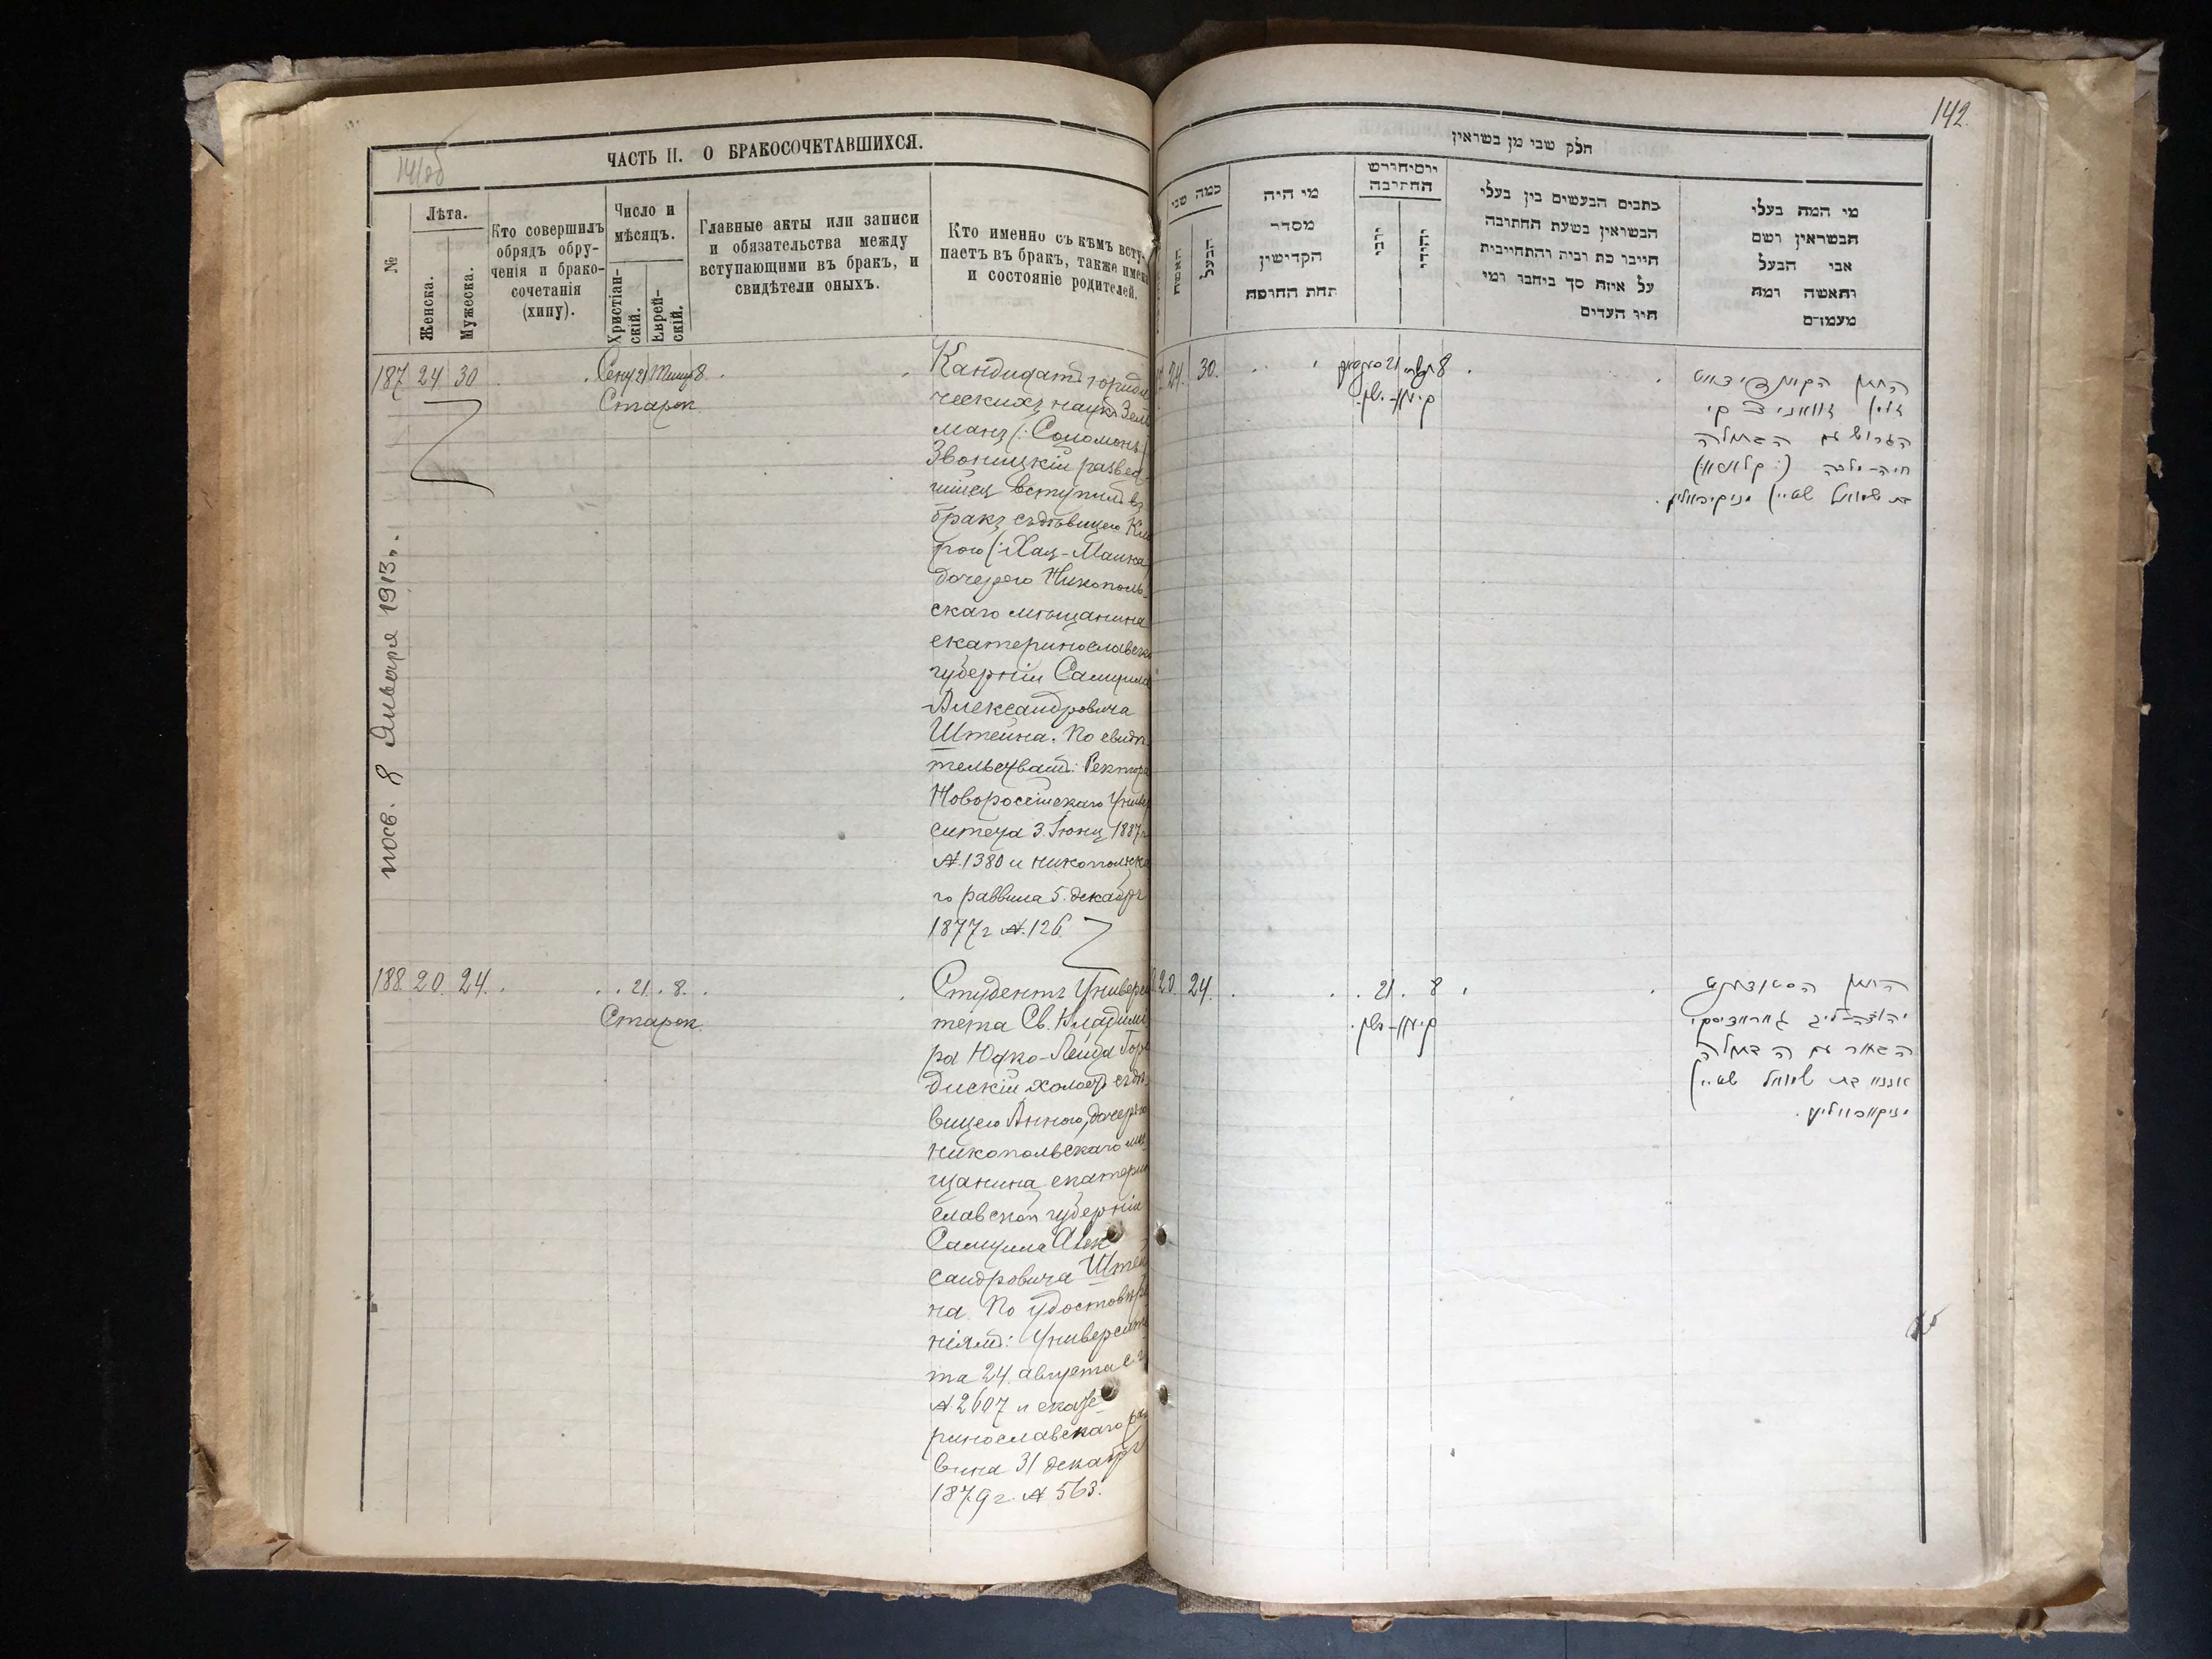 141об
ЧАСТЬ II. О БРАКОСОЧЕТАВШИХСЯ.
№
Лѣта.
Женска.
Мужеска.
Кто совершилъ
обрядъ обру-
ченія и брако-
сочетанія
(хипу).
Число и
мѣсяцъ.
Христіан-
скій.
Еврей-
скій.
Главные акты или записи
и обязательства между
вступающими въ бракъ, и
свидѣтели оныхъ.
Кто именно съ кѣмъ всту-
паетъ въ бракъ, также имена
и состояніе родителей.
187 24 30 Сент 21 Тишр 8.
Старок.
Кандидатъ юриди
ческихъ наукъ Зель
манъ (: Соломонъ
Звоницкій развед
шійся вступилъ въ
бракъ съ дѣвицею Кла
рою (: Хая-Малка
дочерью Никополь-
скаго мѣщанина
екатеринославск
губерніи Самуила
Александровича
Штейна. По свидѣ
тельствамъ: Ректора
Новороссійскаго Универ
ситета 3. Іюня 1887 г
№ 1380 и никопольска
го раввина 5. декабря
1877 г №. 126.
посв. 8 Января 1913 г.
188. 20. 24. 21. 8.
Старок.
Студентъ Универси
тета Св. Владими
ра Юдко-Лейба Горо
дискій холост съ дѣ-
вицею Анною, дочерью
никопольскаго мѣ
щанина екатерино
славской губерніи
Самуила Алек
сандровича Штей
на. По удостовѣре
ніямъ: Университе
та 24. августа с. г.
№ 2607 и екате
ринославскаго рав
вина 31 декабря
1879 г. № 563.
142.
חלק שני מן הנשואין
כמה שני
האשה
הבעל
מי היה
מסדר
הקדישין
תחת החופה
יום וחודש
החתונה
יהודי
כתבים הנעשים בין בעלי
הנשואין בשעת החתונה
חייבו כת וביה והתחייבות
על איזה סך ביחבו ומי
היו העדים
מי המה בעלי
הנשואין ושם
אבי הבעל
והאשה ומה
מעמדם
24. 30. 21 8
החתן הקאנדידאט
זלמן זוואניצקי
הגרוש עם הבתולה
חיה-מלכה (: קלארא:)
בת שמואל שטיין מניקאפאליע.
20. 24. 21. 8
החתן הסטודענט
יהודה-ליב גאראדיסקי
הבחור עם הבתולה
אננא בת שמואל שטיין
מניקאפאליע.